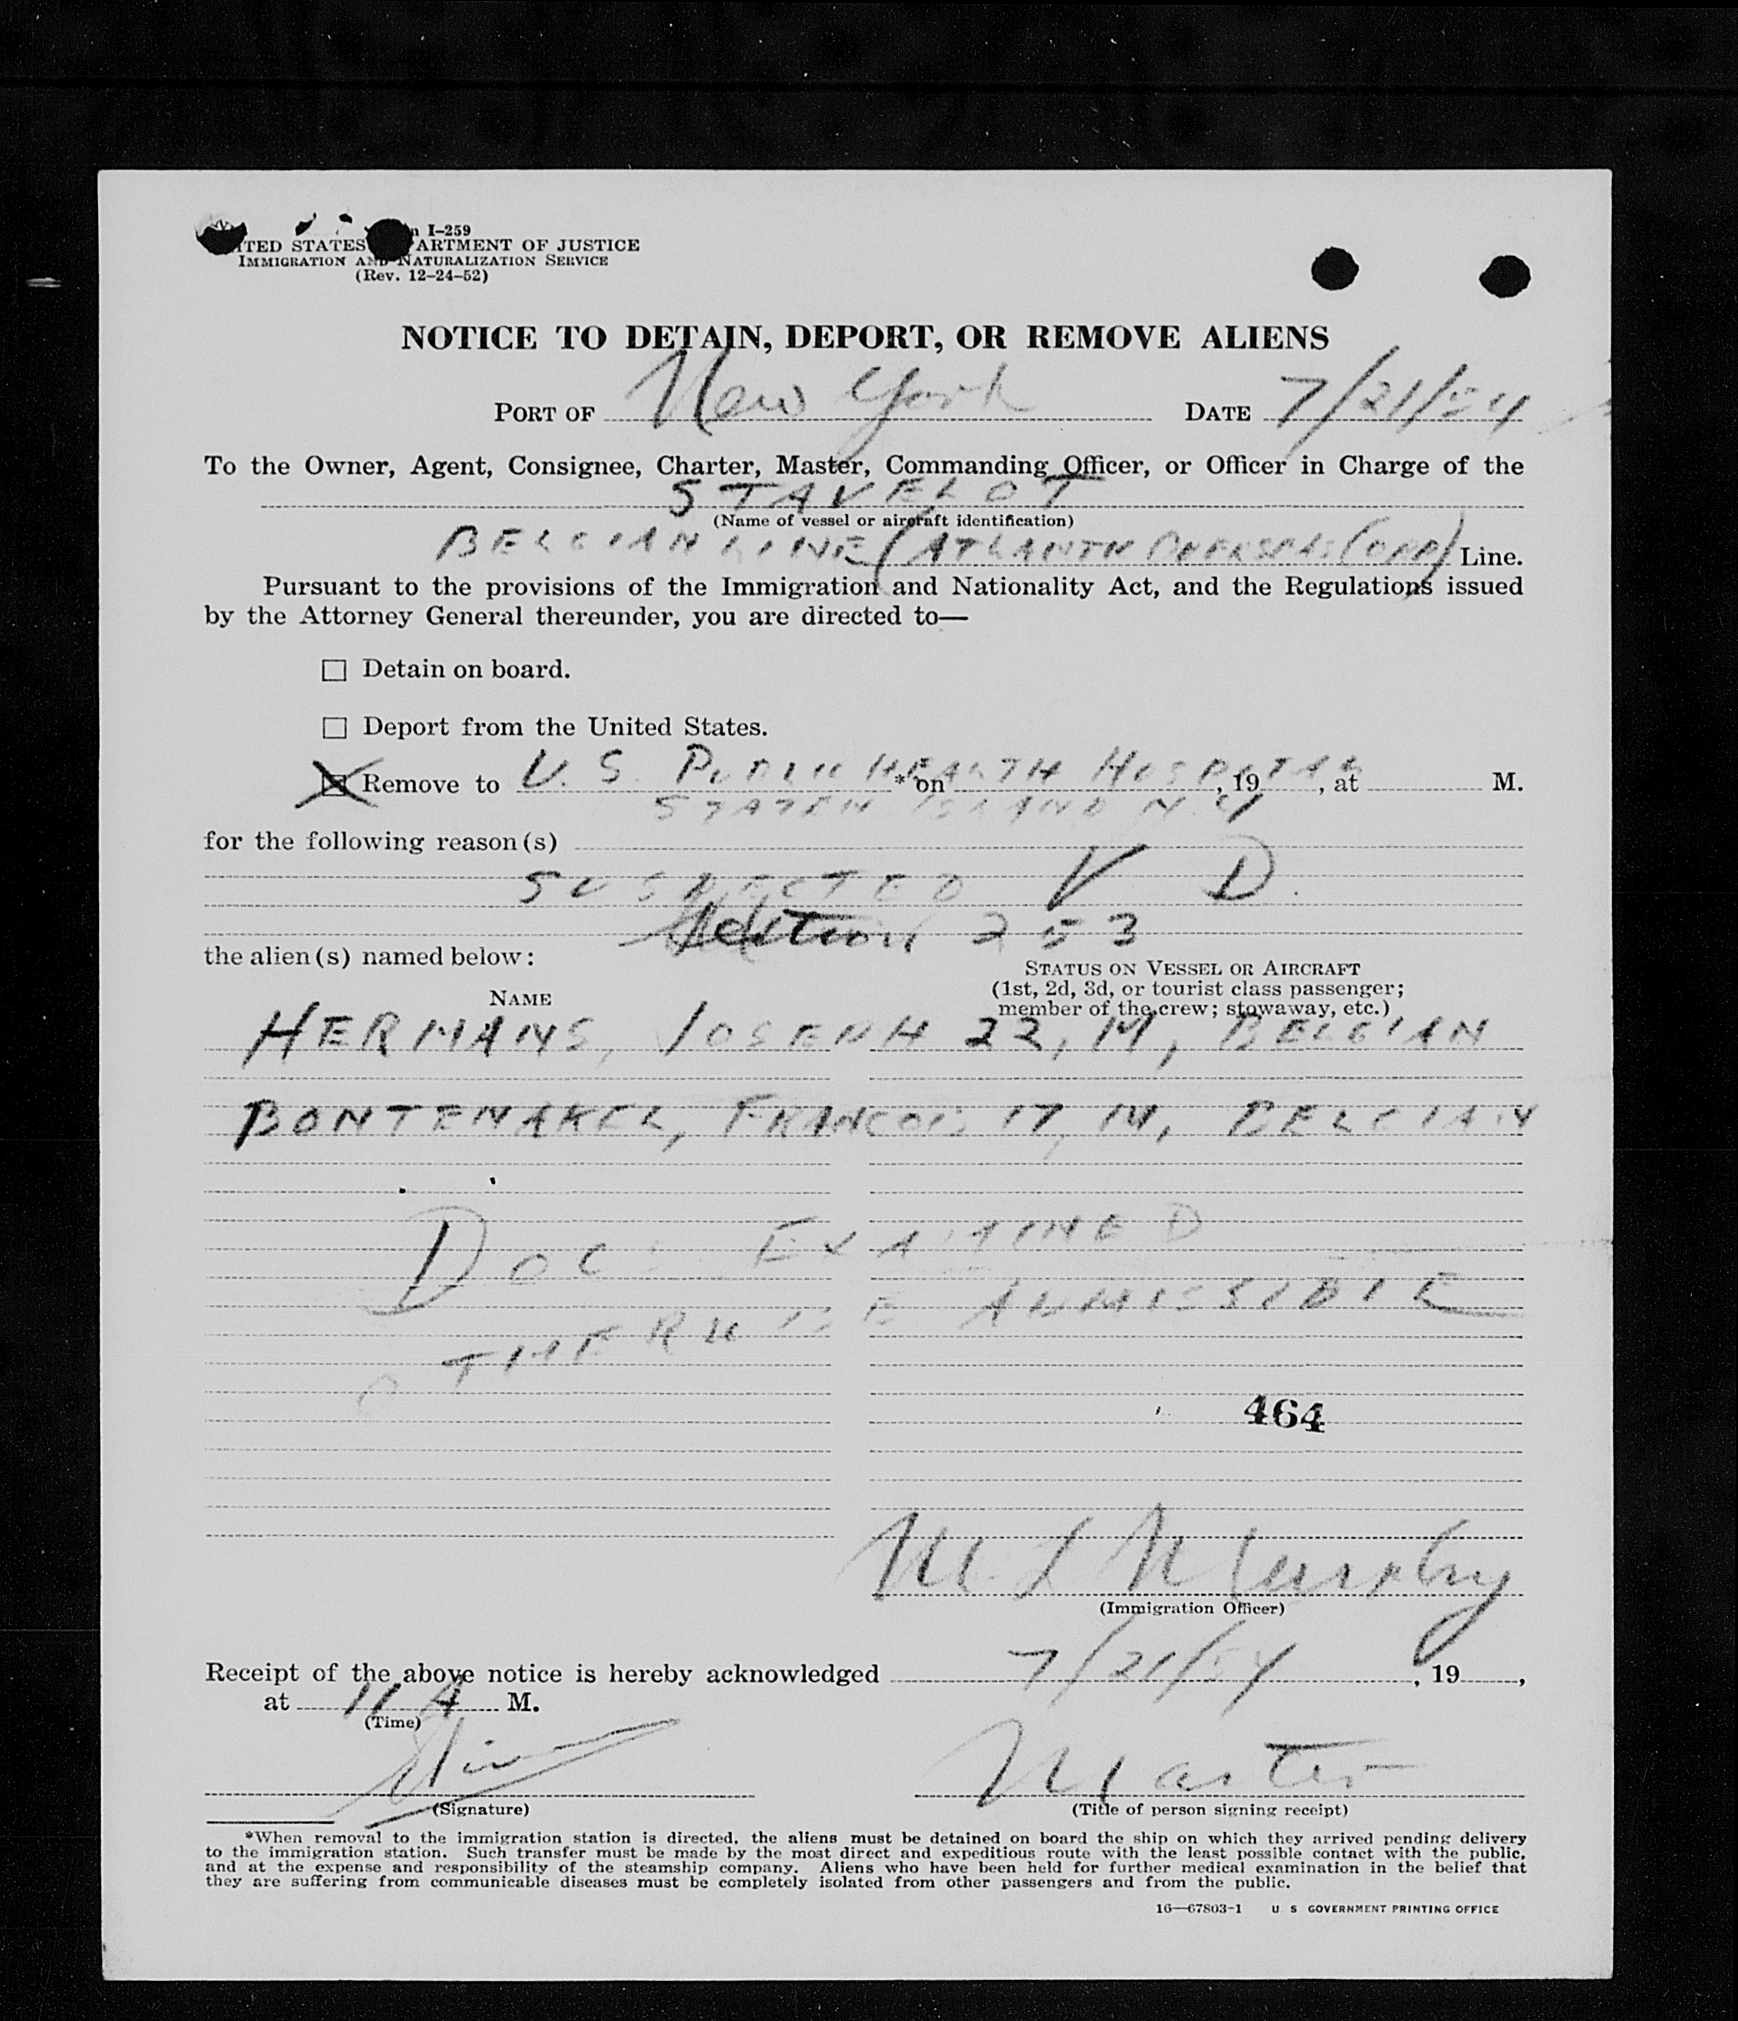 I-259
UNITED STATES DEPARTMENT OF JUSTICE
IMMIGRATION AND NATURALIZATION SERVICE
(Rev. 12-24-52)
NOTICE TO DETAIN, DEPORT, OR REMOVE ALIENS
PORT OF New York DATE 7/21/54
To the Owner, Agent, Consignee, Charter, Master, Commanding Officer, or Officer in Charge of the
STAVELOT
(Name of vessel or aircraft identification)
BELGIAN LINE (ATLANTIC OVERSEAS CORP) Line.
Pursuant to the provisions of the Immigration and Nationality Act, and the Regulations issued
by the Attorney General thereunder, you are directed to—
☐ Detain on board.
☐ Deport from the United States.
☒ Remove to U. S. PUBLIC HEALTH HOSPITAL * on , 19 , at M.
STATEN ISLAND N.Y
for the following reason(s)
SUSPECTED V D.
Section 253
the alien(s) named below:
STATUS ON VESSEL OR AIRCRAFT
(1st, 2d, 3d, or tourist class passenger;
member of the crew; stowaway, etc.)
NAME
HERMANS, JOSEPH 22, M, BELGIAN
BONTEMAKEL, FRANCOIS 17, M, BELGIAN
DOCS EXAMINED
OTHERWISE ADMISSIBLE
464
M. L. Murphy
(Immigration Officer)
Receipt of the above notice is hereby acknowledged 7/21/54, 19 ,
at 11 A M.
(Time)
Master
(Signature) (Title of person signing receipt)
*When removal to the immigration station is directed, the aliens must be detained on board the ship on which they arrived pending delivery
to the immigration station. Such transfer must be made by the most direct and expeditious route with the least possible contact with the public,
and at the expense and responsibility of the steamship company. Aliens who have been held for further medical examination in the belief that
they are suffering from communicable diseases must be completely isolated from other passengers and from the public.
16—67803-1 U S GOVERNMENT PRINTING OFFICE